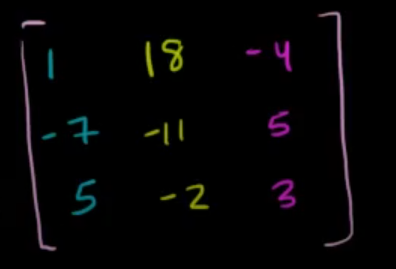 1 18 -4
-7 -11 5
5 -2 3